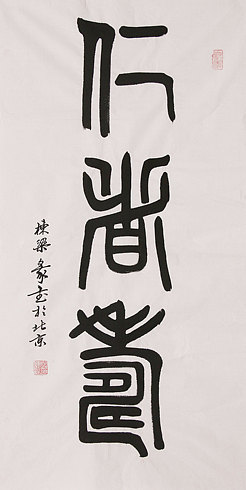 仁者壽
棟梁篆書於北京